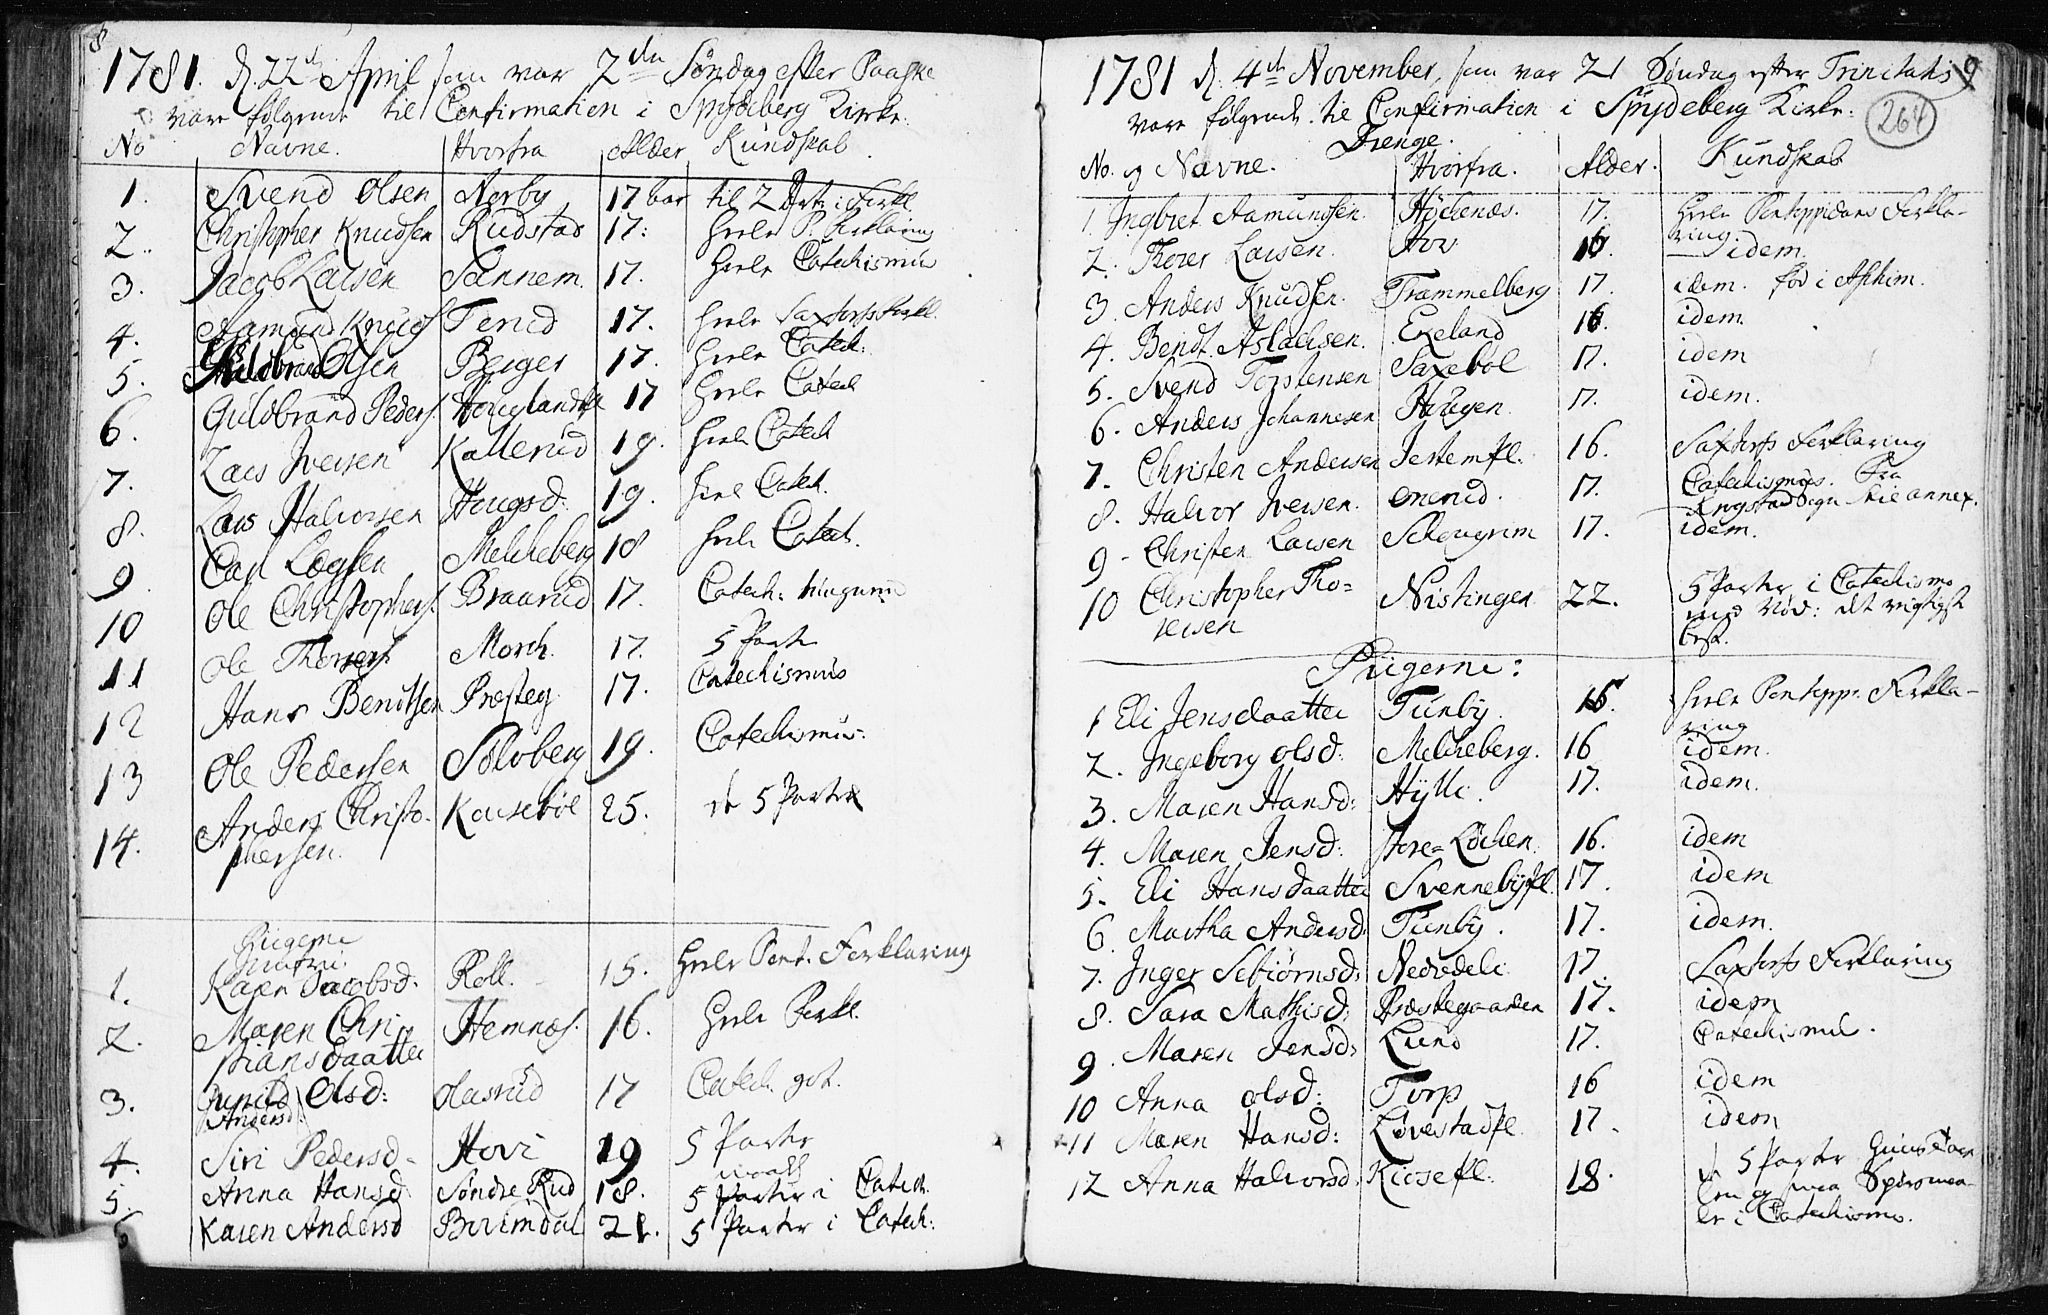 8
1781. d. 22d April som var 2den Søndag efter Paaske
vare følgende til Confirmation i Spydeberg Kirke.
No Navne. Hvorfra Alder Kundskab
1. Svend Olsen Norby 17 aar til 2 Art: i Forkl.
2. Christopher Knudsen Rudstad 17: heele P. Forklaring
3. Jacob Larsen Sannem 17. heele Catechismus
4. Aamund Knuds Terud 17. heele Saxtorfs Forkl.
5. Olsen Berger 17. heele Catech:
6. Guldbrand Peders. Houglandfl 17 heele Catech
7. Lars Iversen Kallerud 19. heele Catech
8. Lars Halvorsen Hougsd. 19. heele Catech.
9. Carl Løgsen Melcheberg 18 heele Catech.
10 Ole Christophers. Braarud 17. Catech:
11 Ole Thorsers. Morch. 17. 5 Parter
12 Hans Bendtsen Præsteg. 17. Catechismus
13 Ole Pedersen Solvberg 19. Catechismus.
14. Anders Christo- Kousebøl 25. de 5 Parter
phersen.
Pigerne
Jumfru
1. Karen Jacobsd. Roll. 15. Heele Pont. Forklaring
2. Maren Chri Hemnæs. 16. Heele Forkl.
stiansdaatter
3. Gunild Olsd: Olasrud 17 Catech. got.
Andersd:
4. Siri Pedersd. Hovi 19 5 Parter
5. Anna Hansd Søndre Rud 18. 5 Parter i Catech.
6 Karen Andersd Bovimdal 21. 5 Parter i Catech:
9
264
1781 d. 4de November, som var 21 Søndag efter Trinitatis
vare følgende til Confirmation i Spydeberg Kirke:
Drenge.
No. og Navne. Hvorfra. Alder. Kundskab
1. Ingbret Aamundsen. Høchenæs. 17. Heele Pontoppidans Forkla-
ring
2. Thorer Larsen. Hov 16. idem.
3. Anders Knudsen. Trammelberg 17. idem. fød i Askim.
4. Bendt Aslachsen. Ekeland 16. idem.
5. Svend Torstensen Saxebøl 17. idem
6. Anders Johannesen Haugen 17. idem.
7. Christen Andersen Jertemfl. 16. Saxtorfs Forklaring
8. Halvor Iversen. onerud. 17. Catechismus. Fra
9. Christen Larsen Schougrim 17. idem.
10 Christopher Tho= Nistingen 22. 5 Parter i Catechismo
rersen med Nød: det vigtigst
best.
Pigerne:
1 Eli Jensdaatter Tunby. 15. heele Pontopp: Forkla-
ring
2. Ingeborg Olsd: Melcheberg. 16 idem.
3. Maren Hansd: Hylli. 17. idem.
4. Maren Jensd: Store=Løchen. 16. idem
5. Eli Hansdaatter Svennebyfl. 17. idem
6. Martha Andersd: Tunby. 17. idem.
7. Inger Sebiørnsd: Nedredeli 17. Saxtorfs Forklaring
8. Sara Mathisd: Præstegaarden 17. idem
9. Maren Jensd: Lund 17. Catechismus.
10 Anna Olsd: Torp 16 idem
11 Maren Hansd: Løvestadfl. 17. idem
12 Anna Halvorsd. Kiosefl. 18. de 5 Parter
og paa Spørsmaa-
er i Catechismo.